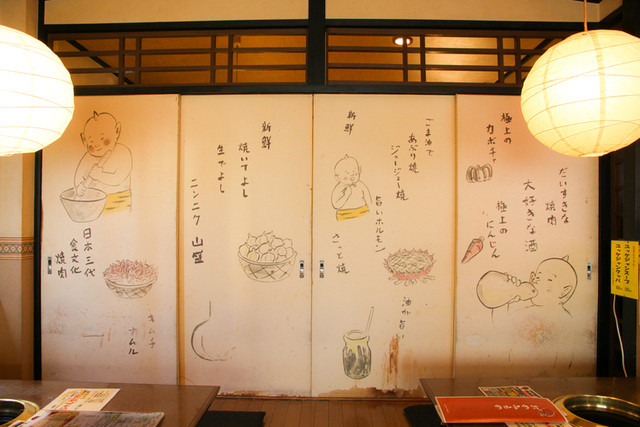 極上の
カボチャ
だいすきな
焼肉
大好きな酒
極上の
にんじん
新鮮
ごま油で
あぶり焼
ジュージュー焼
旨いホルモン
さっと焼
油が旨い
新鮮
焼いてよし
生でよし
ニンニク山盛
日本三代
食文化
焼肉
キムチ
ナムル
ユッケジャンスープ
ユッケジャンクッパ